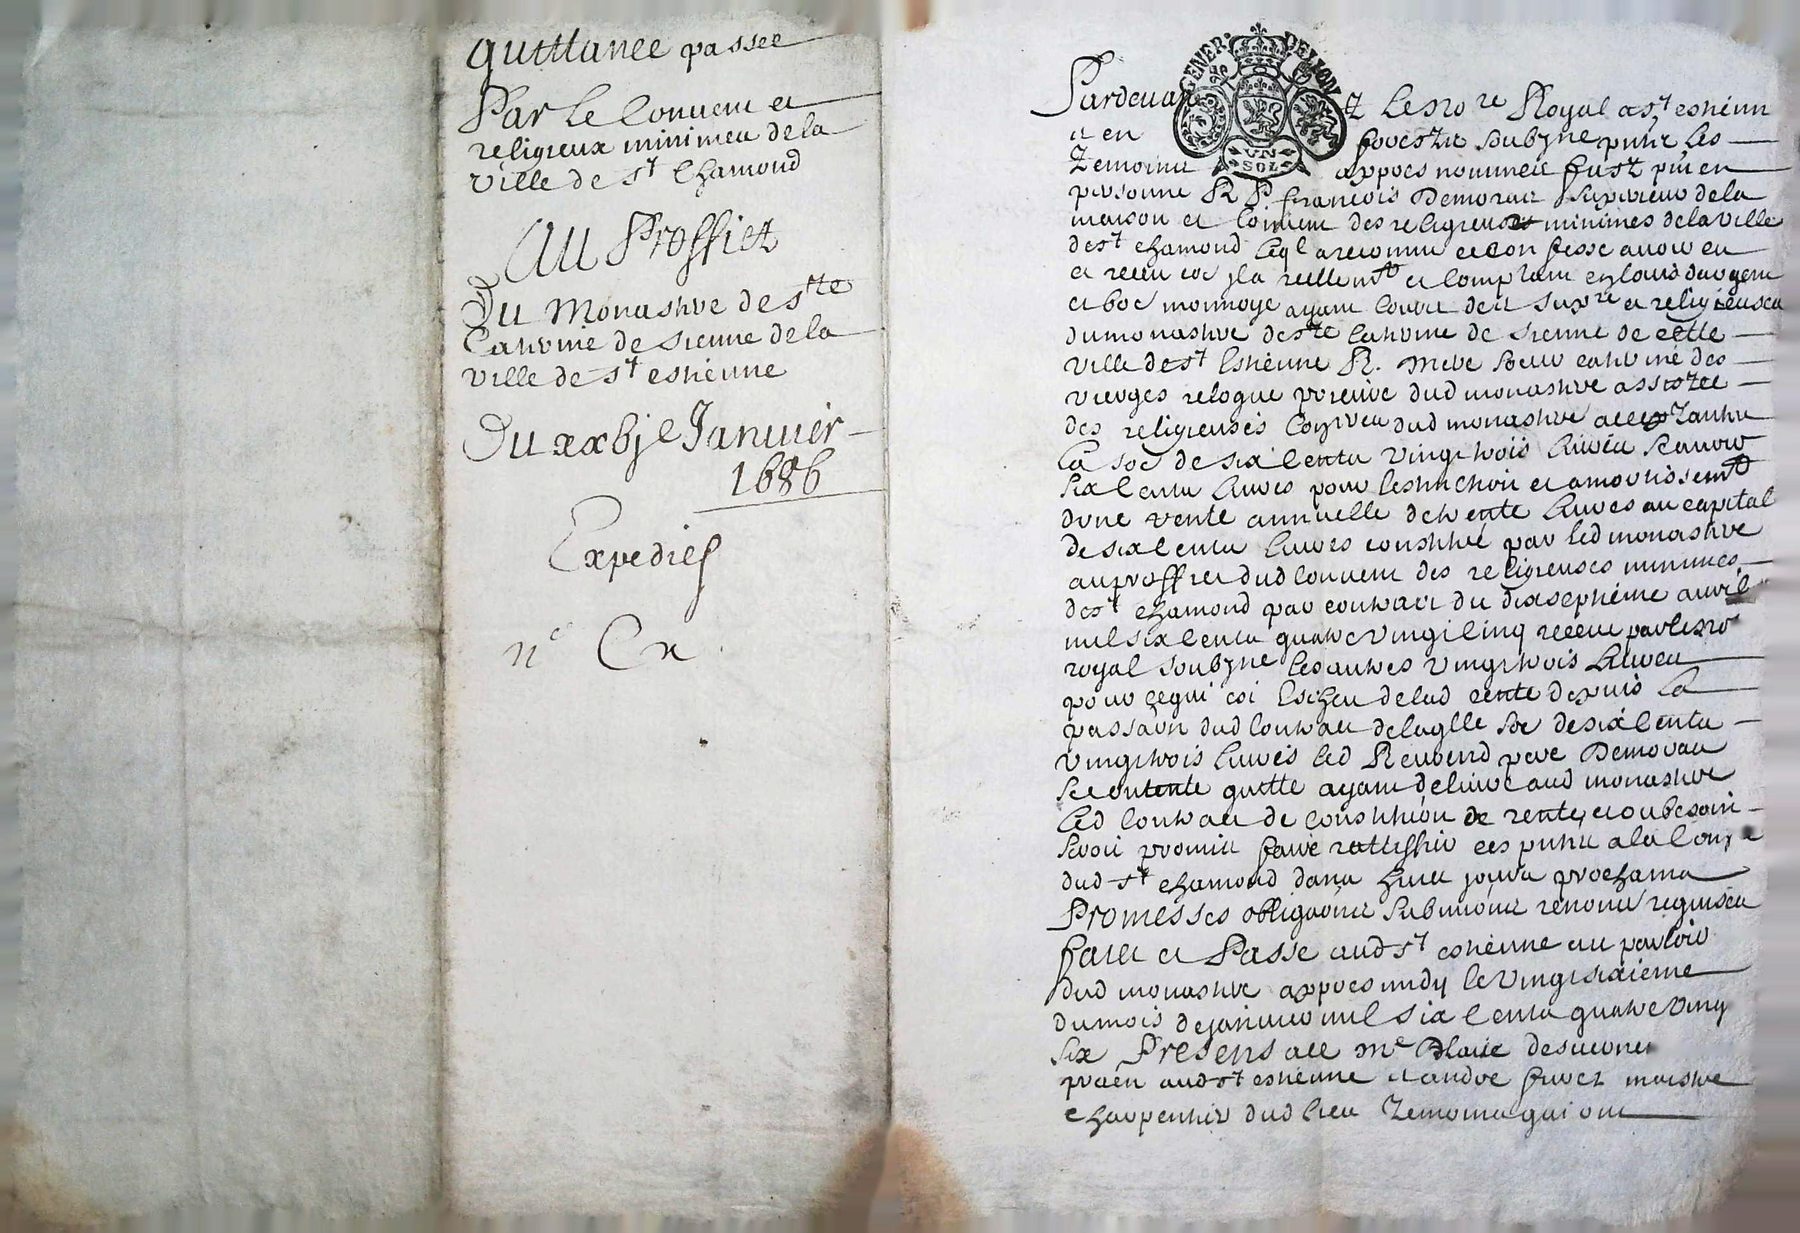 quittance passée
Par Le Convent et
religieux minimes de la
ville de st Chamond
Au Proffict
Du Monastere de ste
Catherine de sienne de la
ville de st estienne
Du xxbje Janvier
1686
Expediés
GENER. DE LYON
VN
SOL
Pardevant Le no re Royal a st estienne
et en forestz soubzne puis les
Temoins appres nommés fust pnt en
personne R P françois Demoras superieur de la
maison et Convent des religieux minimes de la ville
de st chamond Leql a reconnu et confesse avoir eu
et receu icy reellemt et Comptant en Louis dargent
et boe monnoye ayant Cours de la supre et religieuses
du monastere de ste Catherine de sienne de cette
ville de st Estienne R. mere soeur catherine des
vierges prieure dud monastere assistée
des religieuses dud monastere
La soe de six Cents vingt trois Livres scavoir
six Cents Livres pour Lestinction et amortissemt
dune rente annuelle de trente Livres au capital
de six Cents Livres constitué par led monastere
au proffict dud Convent des religieuses minimes
de st chamond par contract du dixseptieme avril
mil six Cents quatre vingt Cinq receu par le no
royal soubzne les autres vingt trois Livres
pour ce qui est Escheu de lad rente depuis La
passaon dud Contract de laqlle soe de six Cents
vingt trois Livres led Reverend pere Demoras
se contente quitte ayant delivré aud monastere
Led Contract de constitution de rente, et ou besoin
seroit promis faire rattiffier ces pntes
dud st chamond dans huit jours prochains
Promesses obligaons submions renons requises
fait et Passe aud st estienne au parloir
dud monastere appres midy le vingt sixieme
du mois de janvier mil six Cents quatre vingt
six Presens a ce Me Blaise
praen aud st estienne et andre maistre
charpentier dud lieu Temoins qui ont